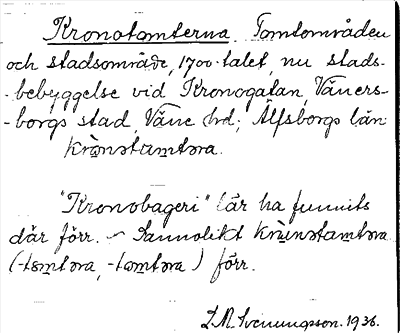 Kronotomterna. Tomtområden
och stadsområde, 1700-talet, nu stads-
-bebyggelse vid Kronogatan, Väners-
-borgs stad, Väne hd; Älfsborgs län
krònɷtɷmtəɳa.
"Kronobageri" lär ha funnits
där förr. ~ Sannolikt krònɷtɷmtəɳa
(-tomtəɳa, -tɷmtəɳa) förr.
L.M. Svenungsson. 1936.